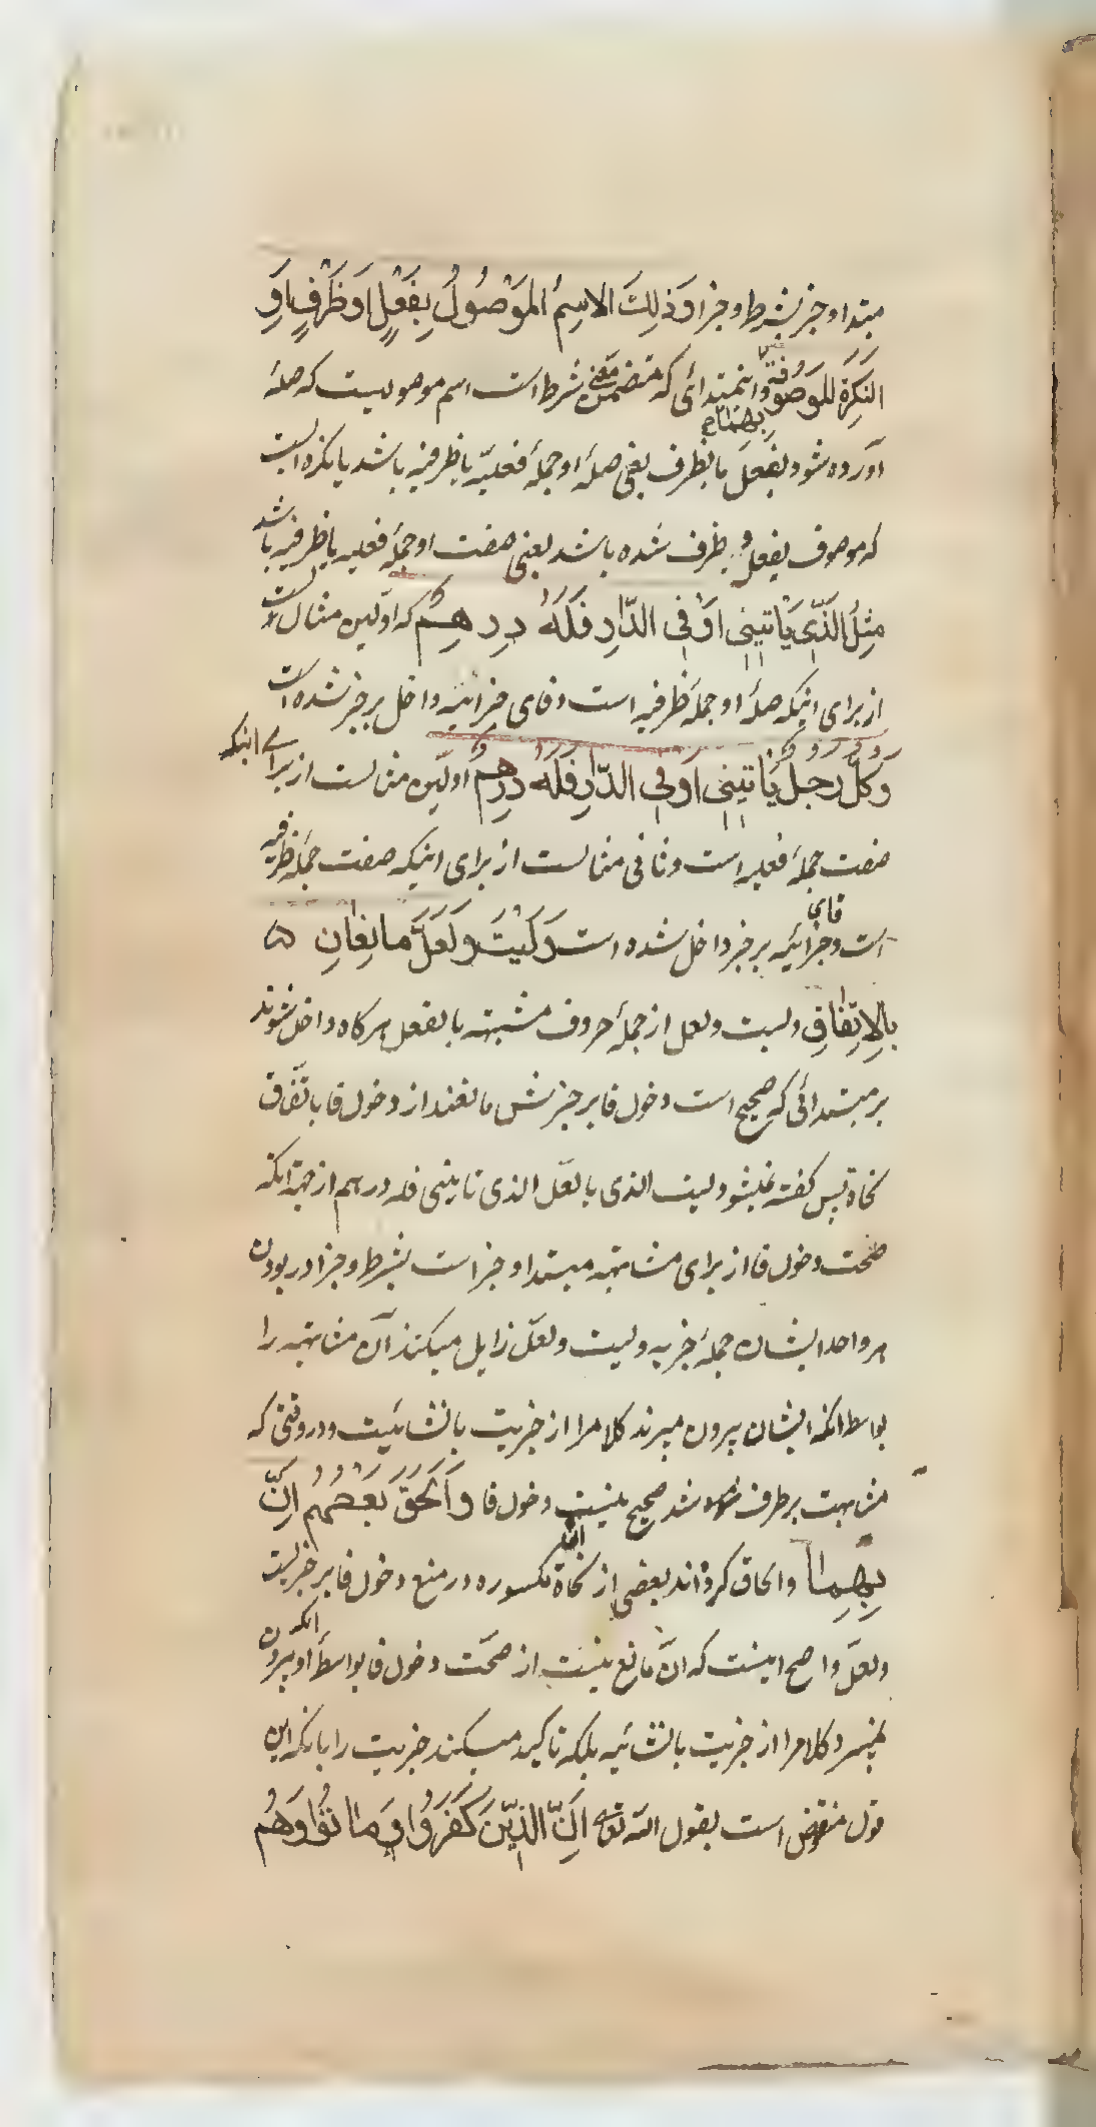 مبتدا و خبر بشرط و جزا وَذٰلِكَ الاِسمُ المَوْصُولُ بِفِعْلٍ اَوْ ظَرْفٍ اَوِ
النَكِرَةُ المَوصُوفَةُ بِهِمَا و اینمبتدائی که متضمن معنی شرط است اسم موصولیست که صلهٔ
آورده شود بفعل یا بظرف یعنی صلهٔ او جملهٔ فعلیّه یا ظرفیه باشد یا نکره ایست
که موصوف بفعل و بظرف شده باشد یعنی صفت او جملهٔ فعلیه یا ظرفیه باشد
مِثلُ الَّذِی یَاْتِینِی اَوْ فِی الدّارِ فَلَهُ دِرهَمٌ که اولین مثالست
از برای اینکه صلهٔ او جملهٔ ظرفیه است و فای جزائیه داخل بر خبر شده است
وَكُلُّ رَجُلٍ یَاْتِینِی اَوْ فِی الدّارِ فَلَهُ دِرهَمٌ اولین مثالست از برای اینکه
صفت جملهٔ فعلیه است و ثانی مثالست از برای اینکه صفت جملهٔ ظرفیه
است و فای جزائیه بر خبر داخل شده است وَلَیْتَ وَلَعَلَّ مانِعَانِ
بِالاِتِفَاقِ و لیت و لعل از جملهٔ حروف مشبهه بالفعل هرکاه داخل شوند
بر مبتدائی که صحیح است دخول فا بر خبرش مانعند از دخول فا باتّفاق
نحاة پس گفته نمیشود لیت الذی یا لعلّ الذی یاتینی فله درهم از جهة انکه
صحت دخول فا از برای مشابهة مبتدا و خبر است بشرط و جزا در بودن
هر واحد ایشان جملهٔ خبریه و لیت و لعلّ زایل میکنند آن مشابهة را
بواسطه انکه ایشان بیرون میبرند کلامرا از خبریت بانشائیت و در وقتی که
مشابهت برطرف شد صحیح نیست دخول فا وَاَلْحَقَ بَعْضُهُمْ اِنَّ
بِهِمَا و الحاق کرده‌اند بعضی از نحاة ان مکسوره در منع دخول فا بر خبر لیت
و لعلّ و اصح اینست که انّ مانع نیست از صحّت دخول فا بواسطهٔ انکه او بیرون
نمیبرد کلامرا از خبریت بانشائیه بلکه تاکید میکند خبریت را با انکه این
قول منقوض است بقول الله تع اِنَّ الَّذِینَ كَفَرُوا وَمَاتُوا وَهُم